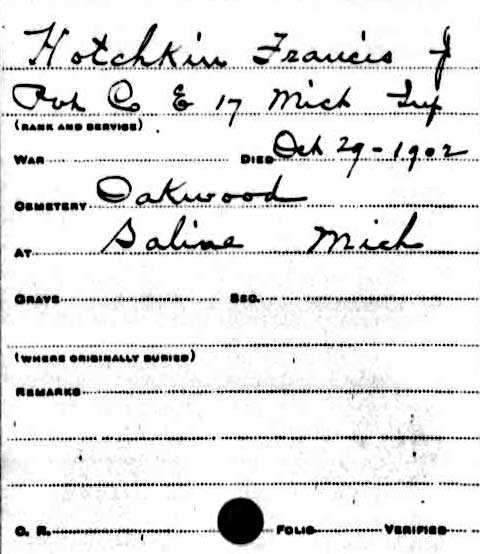 Hotchkin Francis J
Pvt Co E 17 Mich Inf
(RANK AND SERVICE)
WAR DIED Oct 29-1902
CEMETERY Oakwood
AT Saline Mich
GRAVE SEC.
(WHERE ORIGINALLY BURIED)
REMARKS
O. R. FOLIO VERIFIED